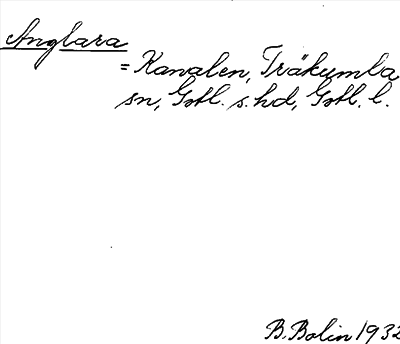 Anglara
= Kanalen, Träkumla
sn, Gotl. s. hd, Gotl. l.
B. Bolin 1932